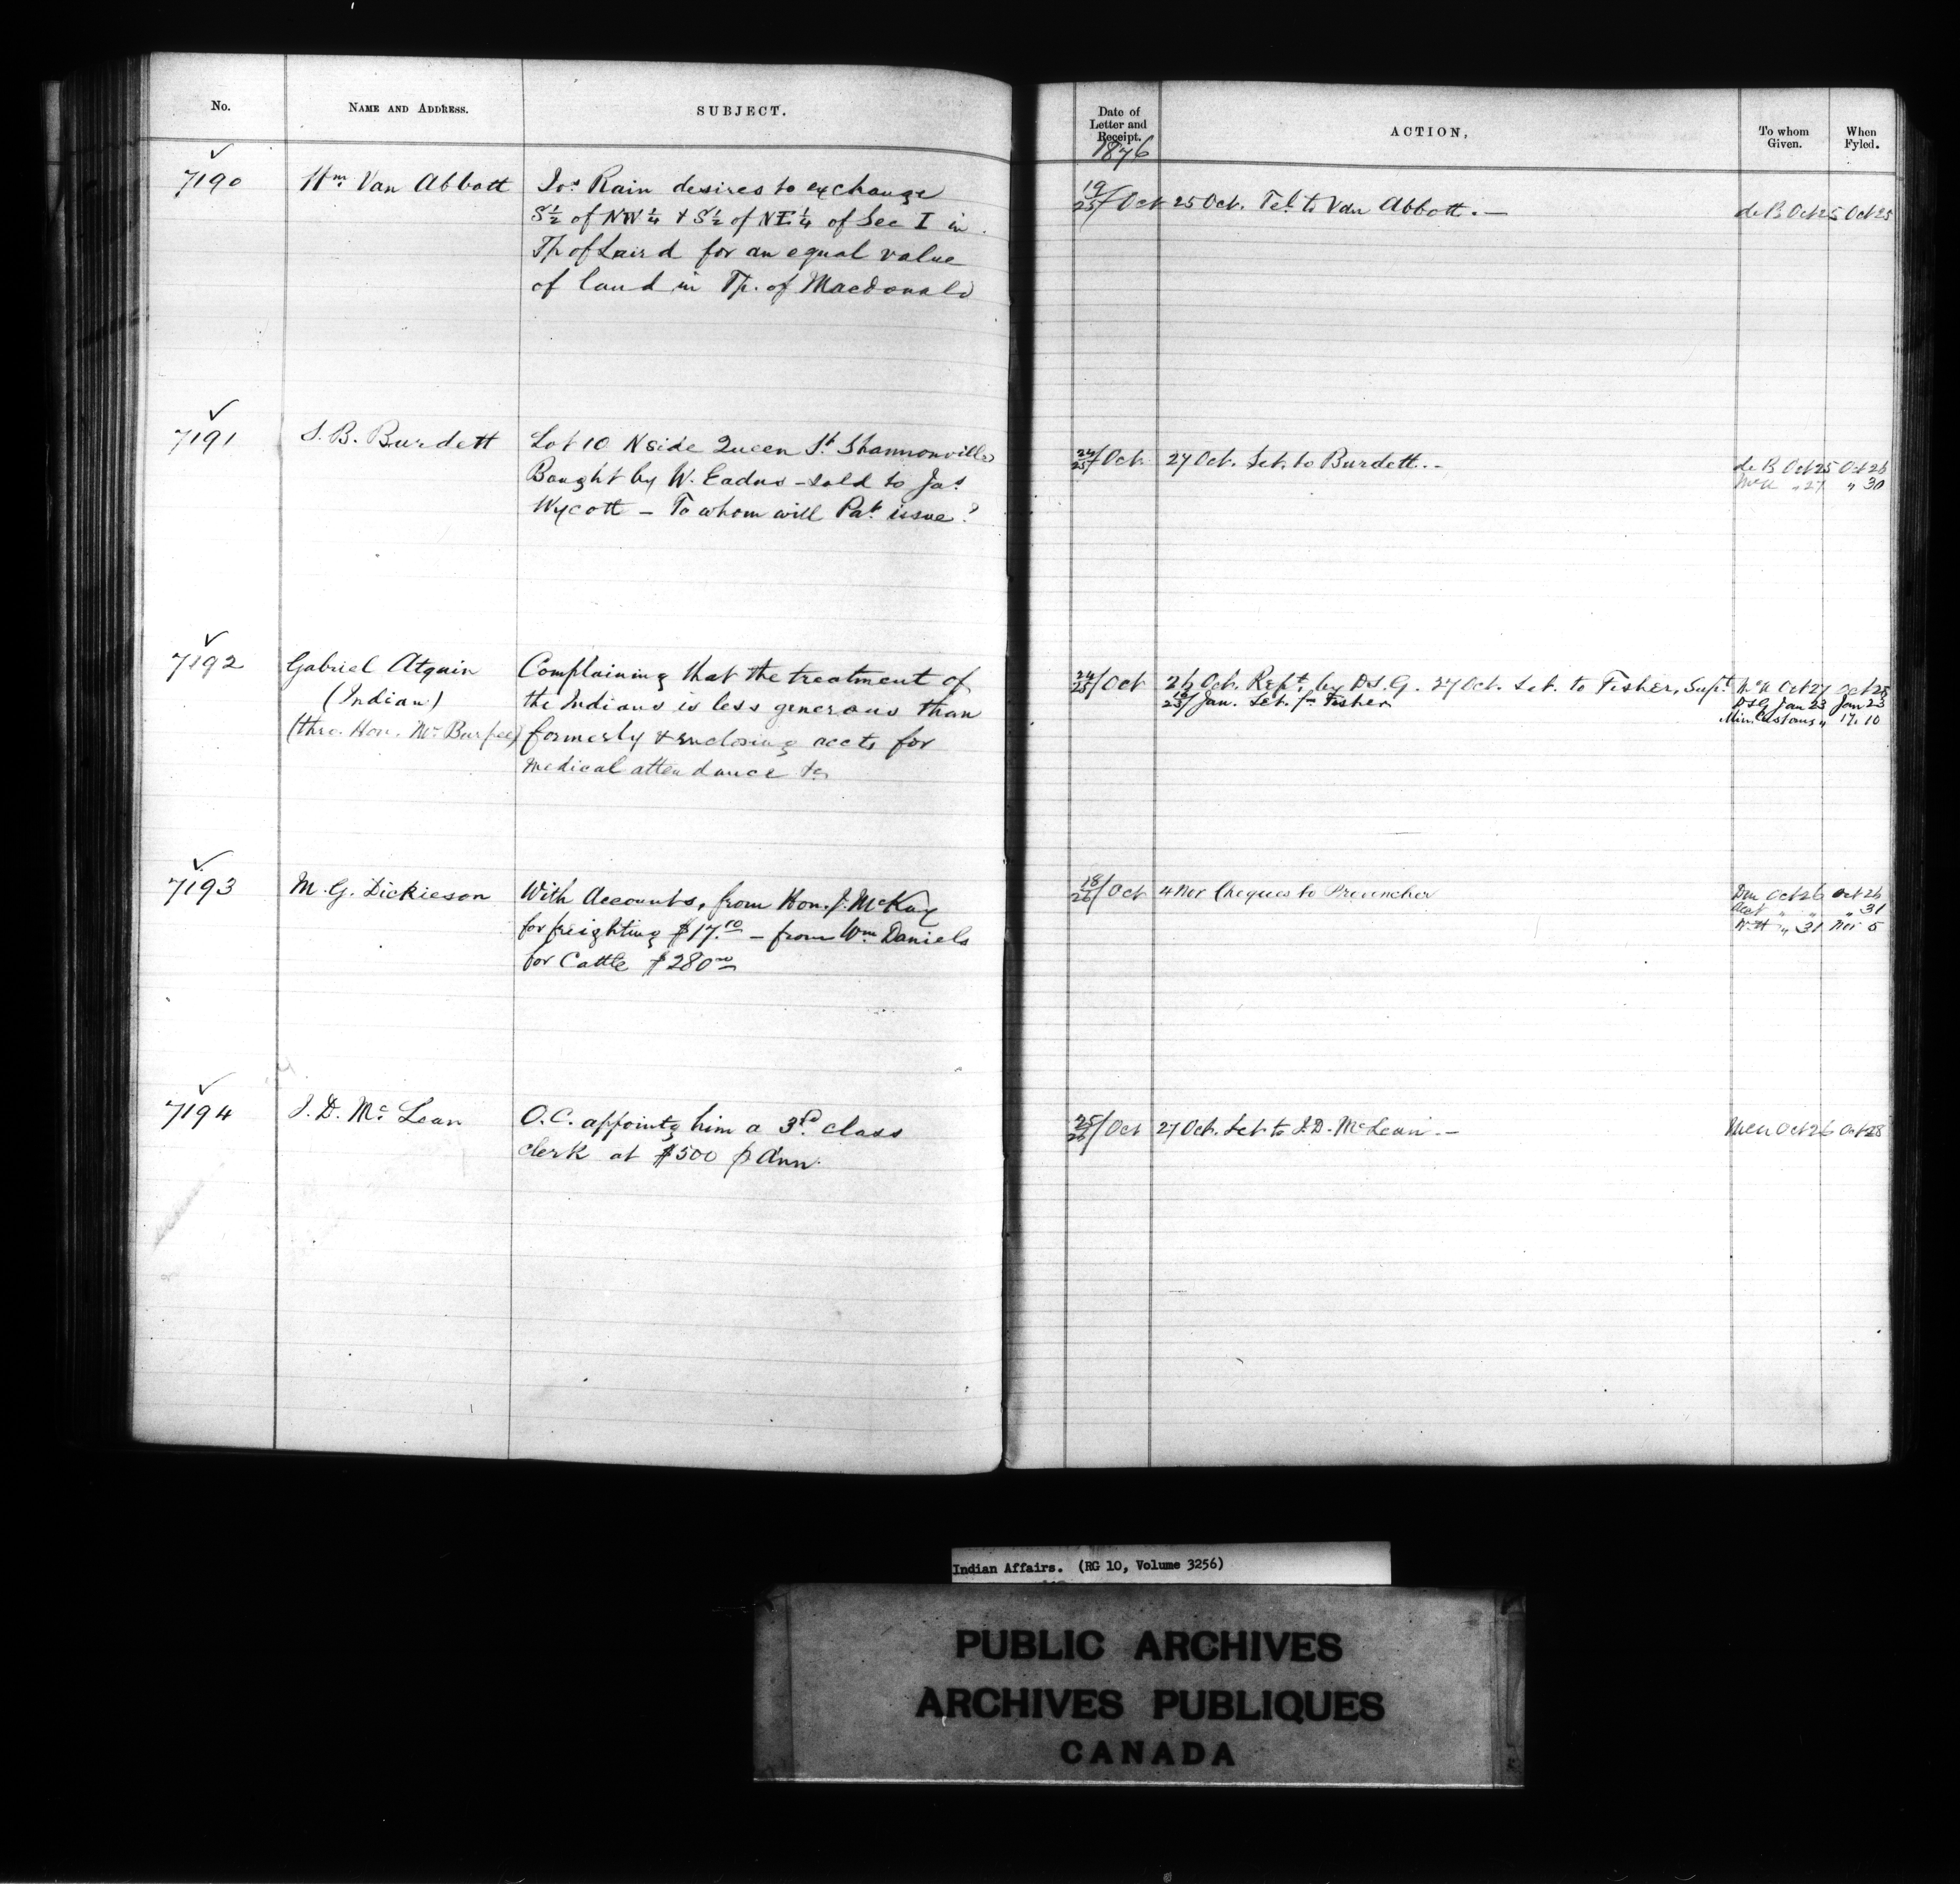 No.
NAME AND ADDRESS.
SUBJECT.
Date of
Letter and
Receipt.
1876
ACTION,
To whom
Given.
When
Fyled.
7190
Wm. Van Abbott
Jos. Rain desires to exchange
S½ of NW¼ & S½ of NE¼ of Sec I in
Tp. of Laird for an equal value
of land in Tp. of Macdonald
19/25/Oct
25 Oct. Tel. to Van Abbott.—
de B Oct 25 Oct 25
7191
S. B. Burdett
Lot 10 N side Queen St. Shannonville
Bought by W. Eadus - sold to Jas.
Wycott — To whom will Pat. issue?
24/25/Oct
27 Oct. Let. to Burdett.-
de B Oct 25 Oct 26
" 27 " 30
7192
Gabriel Atquin
(Indian)
(thro. Hon. Mr. Burpee)
Complaining that the treatment of
the Indians is less generous than
formerly & enclosing accts for
medical attendance &c
24/25/Oct
26 Oct. Rept. by D.S.G. 27 Oct. Let. to Fisher, Supt.
Jan. Let. fm Fisher
Oct 27 Oct 28
DSG Jan 23 Jan 23
Min. Customs " 17. 10
7193
M. G. Dickieson
With Accounts, from Hon. J. McKay
for freighting $17.10 — from Wm Daniels
for Cattle $280.00
18/26/Oct
4 Nov Cheques to Provencher
Oct 26 Oct 26
Acct " " " 31
" 31 Nov 5
7194
J. D. McLean
O.C. appointg him a 3rd. class
clerk at $500 p Ann.
25/26/Oct
27 Oct. Let. to J. D. McLean.—
Oct 26 Oct 28
Indian Affairs. (RG 10, Volume 3256)
PUBLIC ARCHIVES
ARCHIVES PUBLIQUES
CANADA